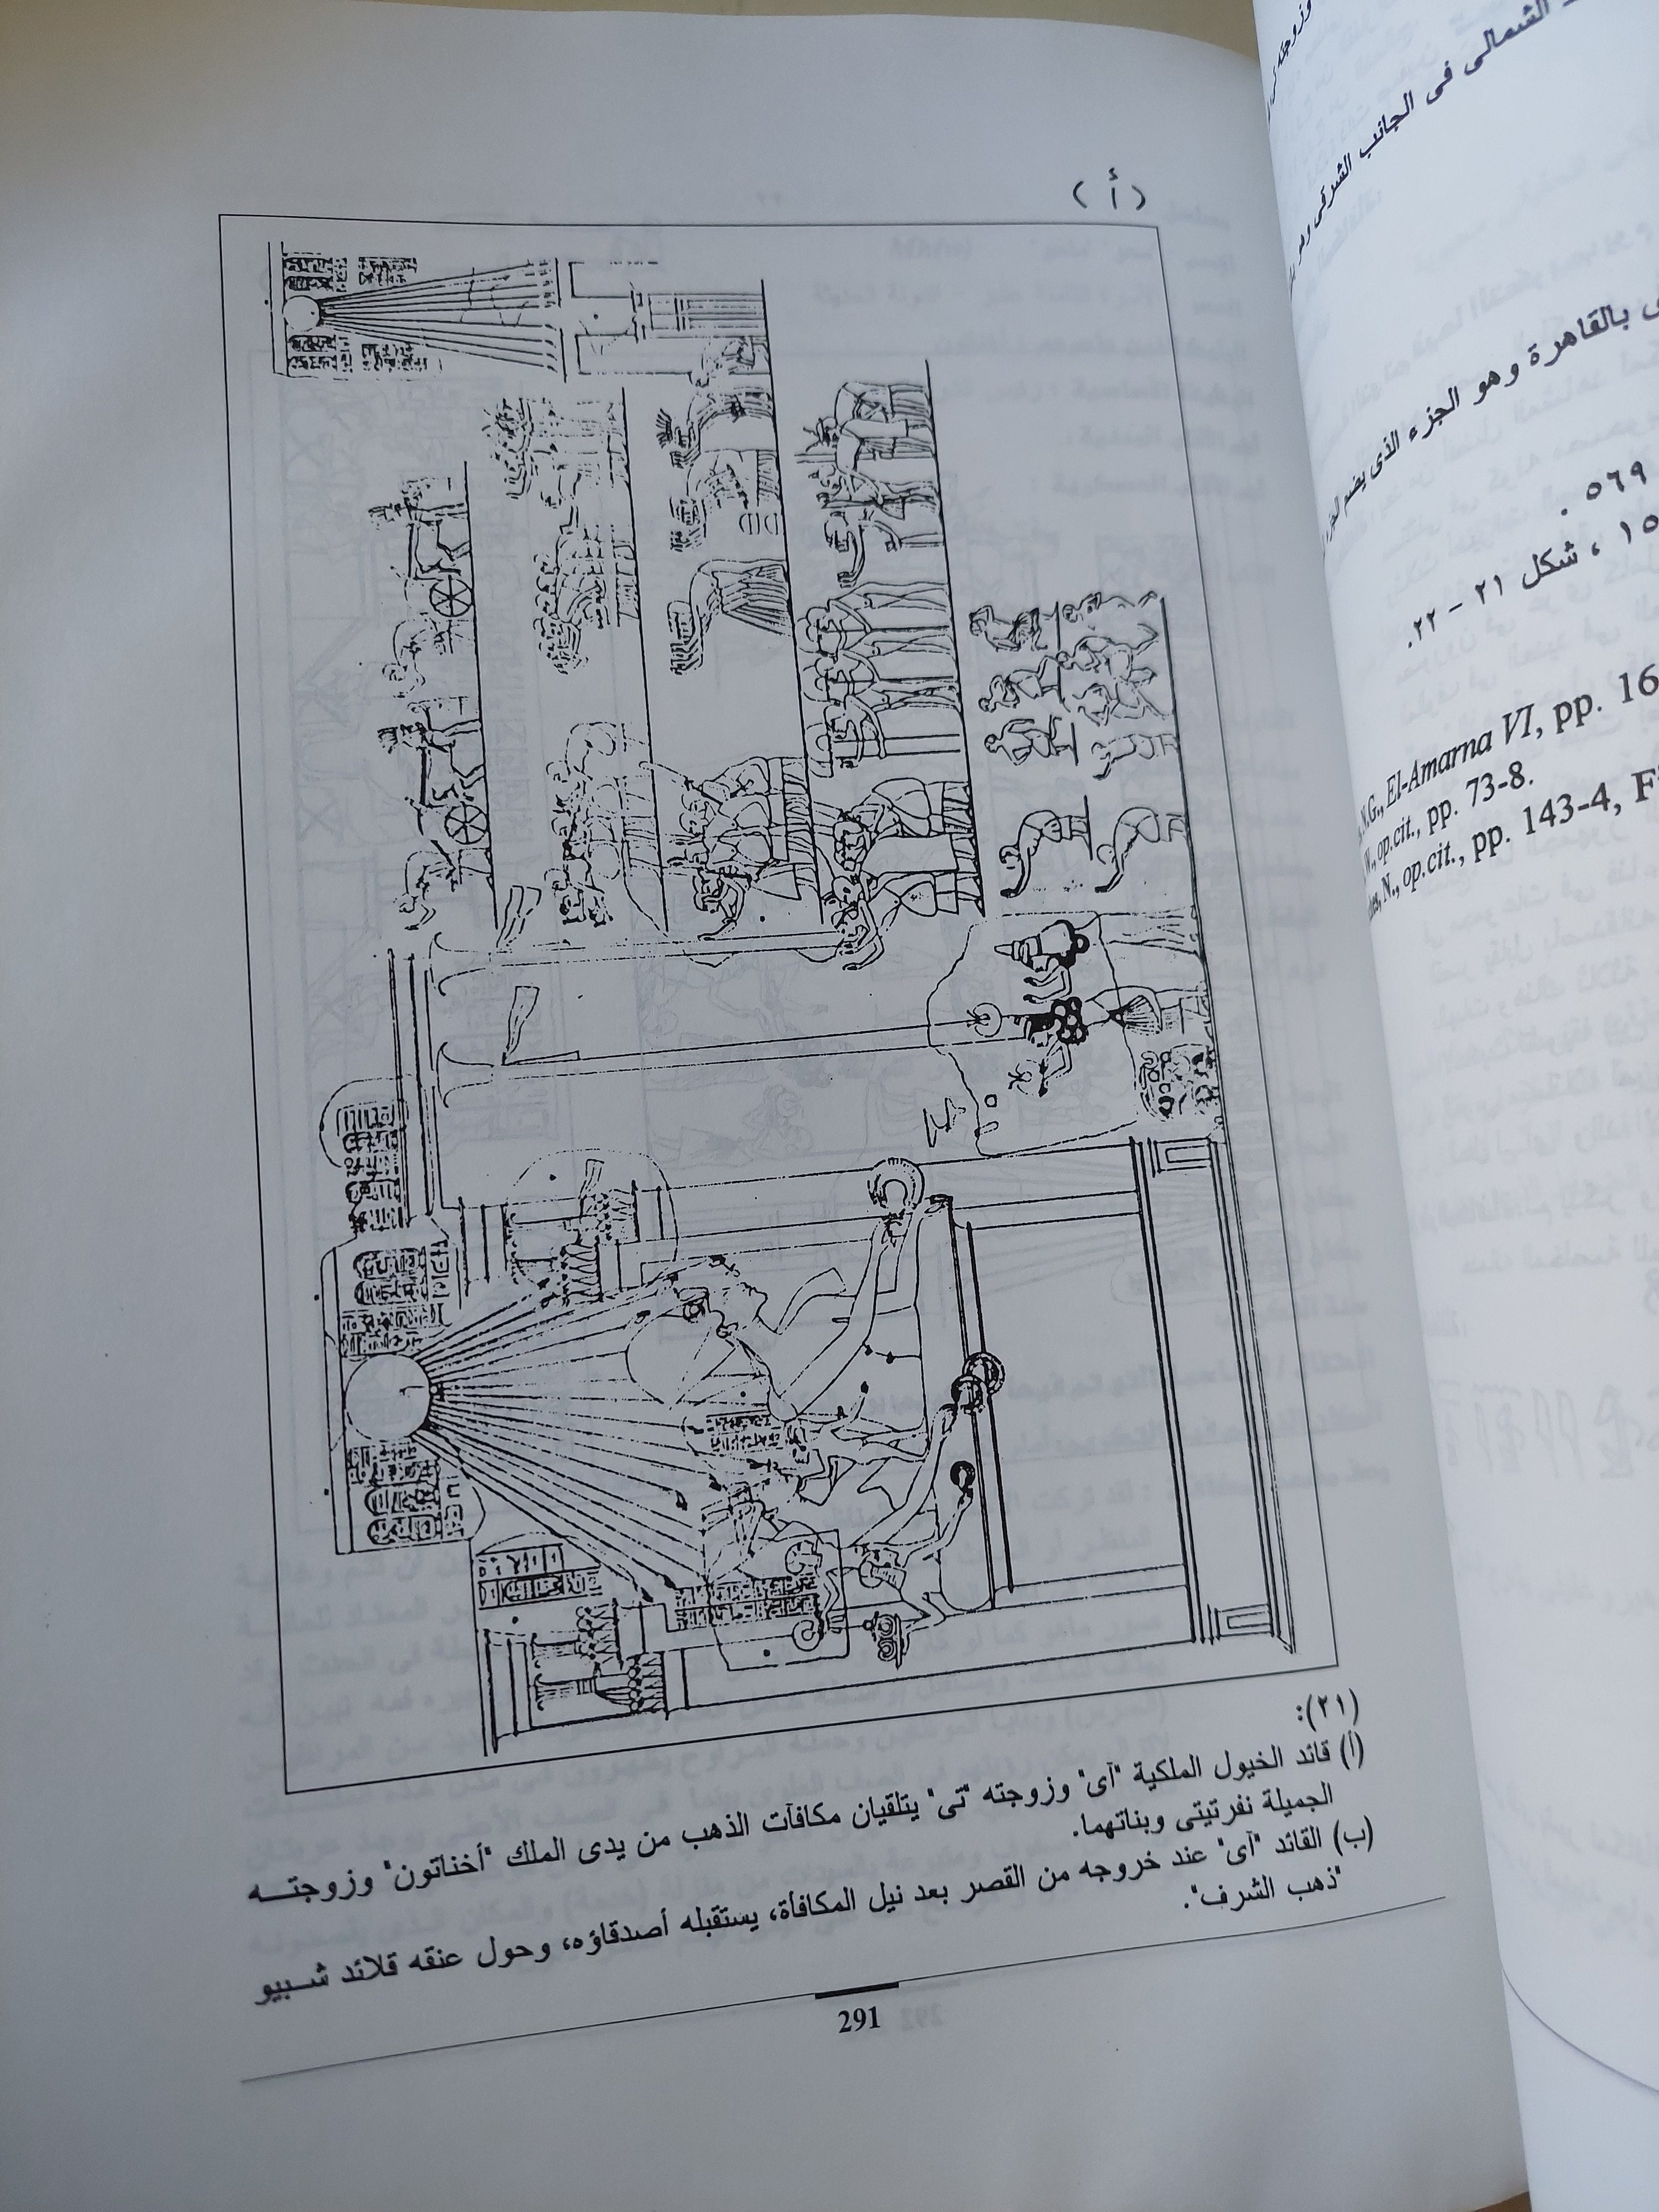 (أ)
(٢١):
(أ) قائد الخيول الملكية "آى" وزوجته "تى" يتلقيان مكافآت الذهب من يدى الملك "أخناتون" وزوجتـــه
الجميلة نفرتيتى وبناتهما.
(ب) القائد "آى" عند خروجه من القصر بعد نيل المكافأة، يستقبله أصدقاؤه، وحول عنقه قلائد شـــبيو
"ذهب الشرف".
291
الشمالى فى الجانب الشرقى
بالقاهرة وهو الجزء الذى يضم
٥٦٩ .
١٥ ، شكل ٢١ – ٢٢.
N.G., El-Amarna VI, pp. 16
W., op.cit., pp. 73-8.
N., op.cit., pp. 143-4, F